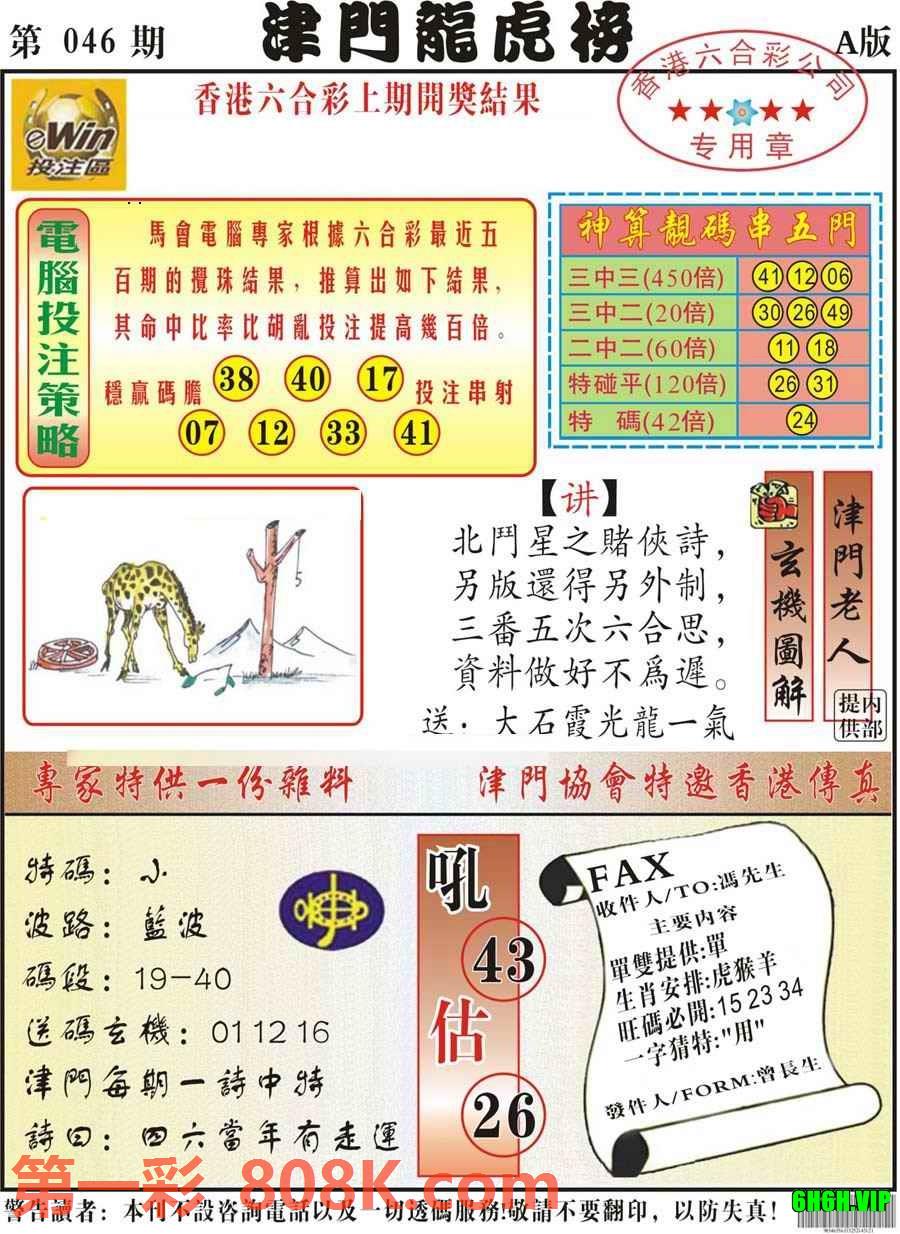 第 046 期
津門龍虎榜
A版
香港六合彩公司
专用章
eWin
投注區
香港六合彩上期開獎結果
電腦投注策略
馬會電腦專家根據六合彩最近五
百期的攪珠結果，推算出如下結果，
其命中比率比胡亂投注提高幾百倍。
穩贏碼膽 38 40 17 投注串射
07 12 33 41
神算靚碼串五門
三中三(450倍) 41 12 06
三中二(20倍) 30 26 49
二中二(60倍) 11 18
特碰平(120倍) 26 31
特 碼(42倍) 24
5
【讲】
北鬥星之賭俠詩，
另版還得另外制，
三番五次六合思，
資料做好不爲遲。
送：大石霞光龍一氣
玄機圖解
津門老人
内部提供
專家特供一份雜料
津門協會特邀香港傳真
特碼：小
波路：藍波
碼段：19-40
送碼玄機：01 12 16
津門每期一詩中特
詩曰：四六當年有走運
吼
43
估
26
FAX
收件人/TO:馮先生
主要内容
單雙提供:單
生肖安排:虎猴羊
旺碼必開:15 23 34
一字猜特:"用"
發件人/FORM:曾長生
第一彩 808K.com
警告讀者：本刊不設咨詢電話以及一切透碼服務!敬請不要翻印，以防失真!
6H6H.VIP